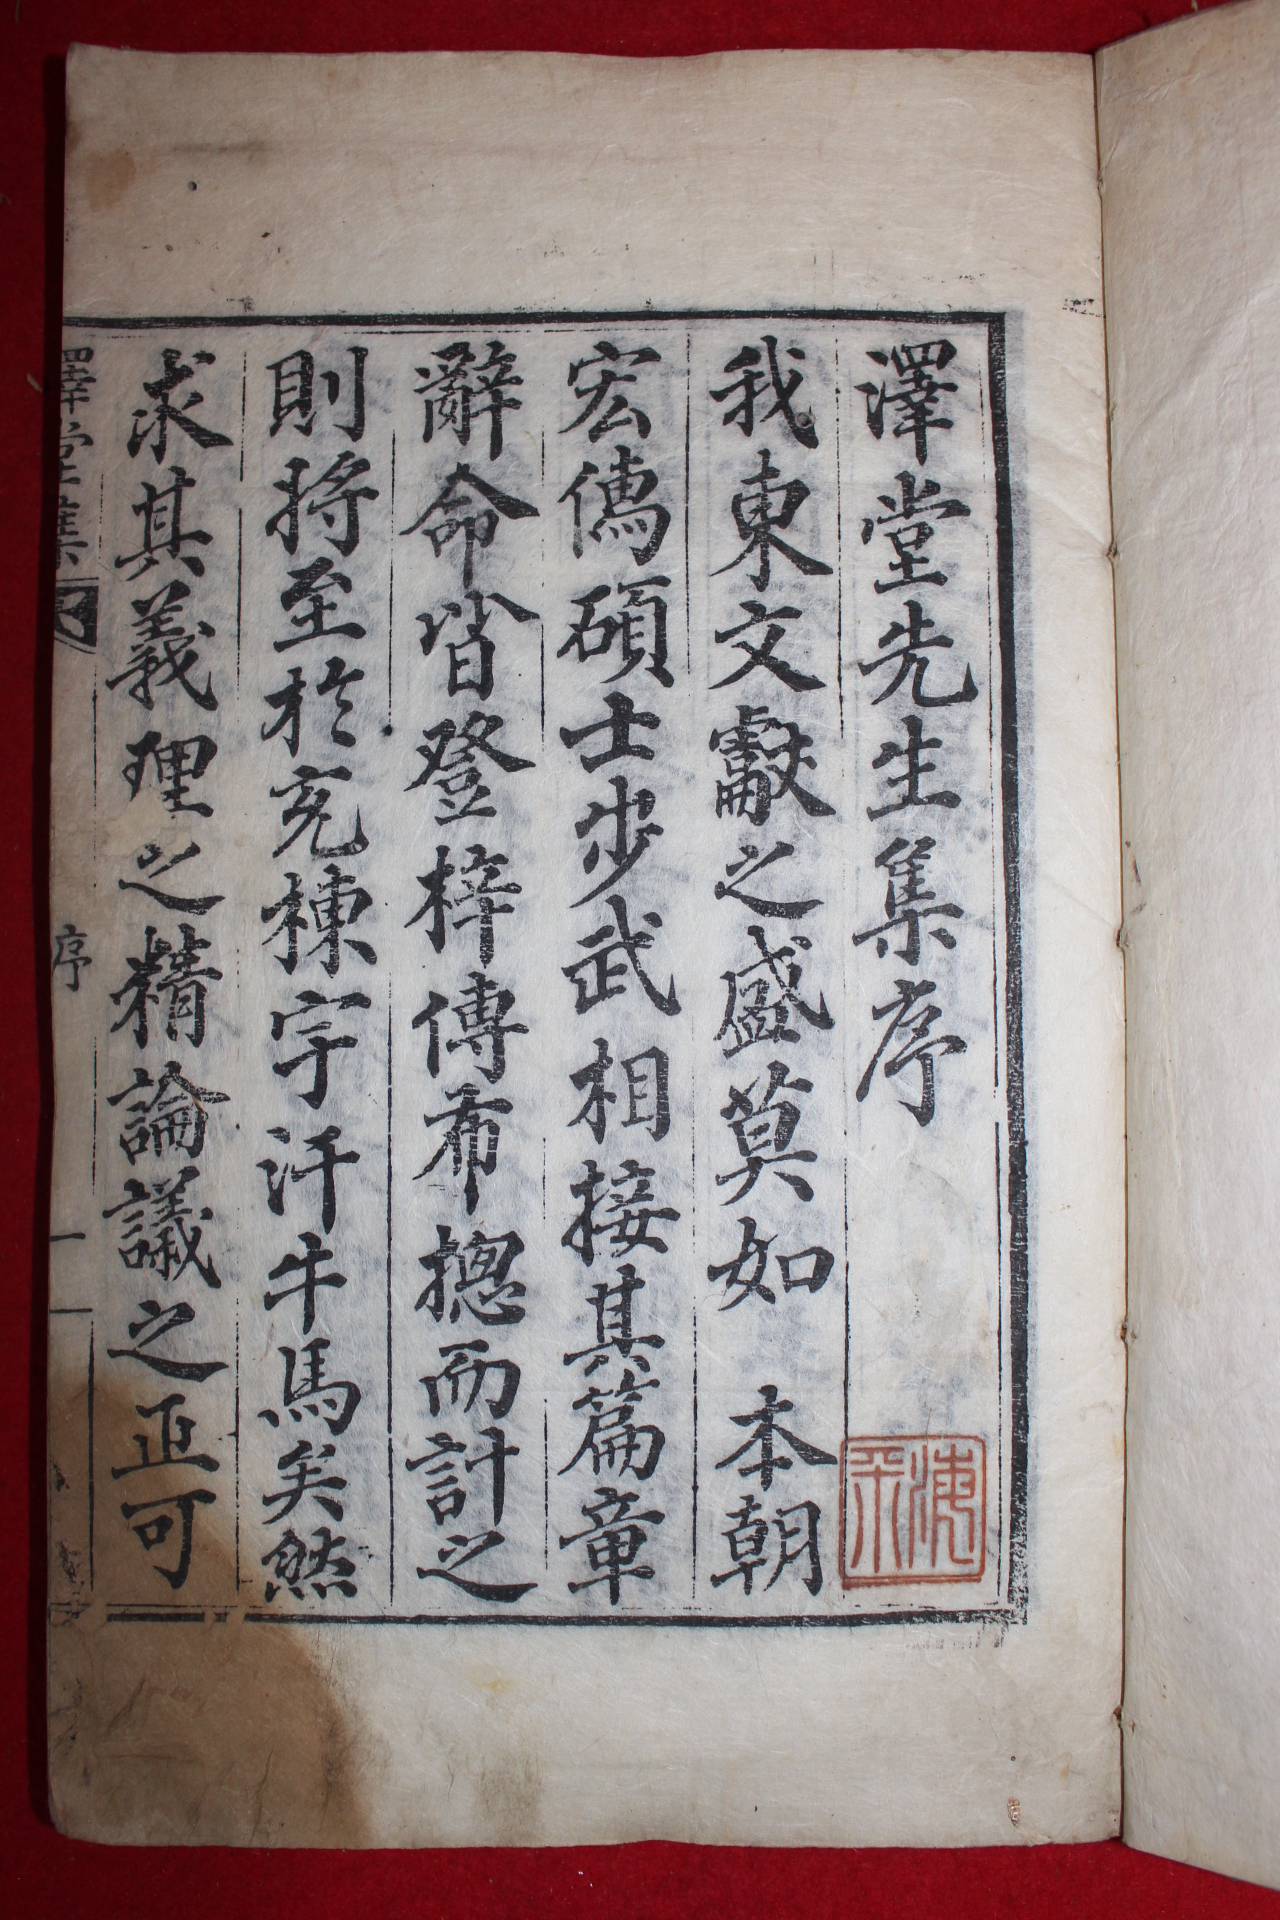 澤堂先生集序
我東文獻之盛莫如　本朝
宏儁碩士步武相接其篇章
辭命皆登梓傳布摠而計之
則將至於充棟宇汗牛馬矣然
求其義理之精論議之正可
澤堂集
序
一
海平